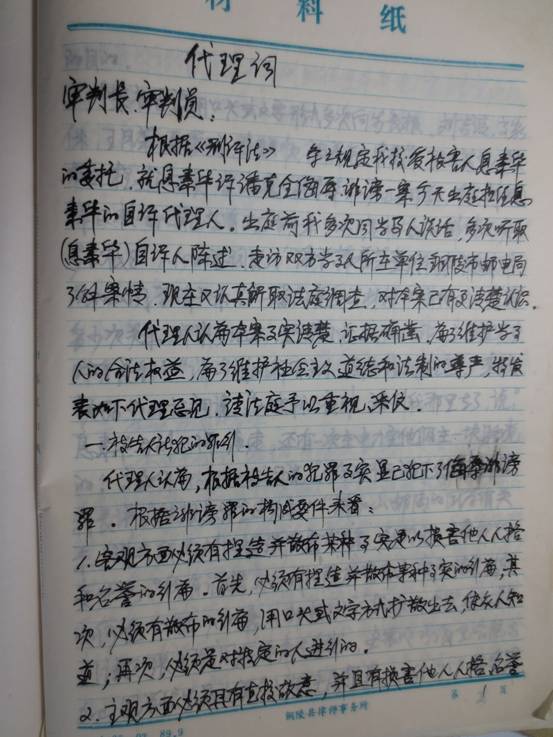 材料纸
代理词
审判长、审判员:
根据《刑诉法》 条之规定我接受被害人息素华
的委托,就息素华诉潘克全侮辱诽谤一案今天出庭担任息
素华的自诉代理人。出庭前我多次同当事人谈话,多次听取
(息素华)自诉人陈述,走访双方当事人所在单位铜陵市邮电局
了解案情,现在又认真听取法庭调查,对本案已有了清楚认识。
代理人认为本案事实清楚,证据确凿,为了维护当事
人的合法权益,为了维护社会主义道德和法制的尊严,特发
表如下代理意见,请法庭予以重视、采仪。
一、被告人所犯的罪行。
代理人认为,根据被告人的犯罪事实显已犯下了侮辱诽谤
罪。根据诽谤罪的构成要件来看:
1.客观方面必须有捏造并散布某种事实足以损害他人人格
和名誉的行为。首先,必须有捏造并散布某种事实的行为,其
次,必须有散布的行为,用口头或文字方式扩散出去,使众人知
道;再次,必须是对特定的人进行的。
2.主观方面必须具有直接故意,并且有损害他人人格、名誉
第1页
铜陵县律师事务所
89.9